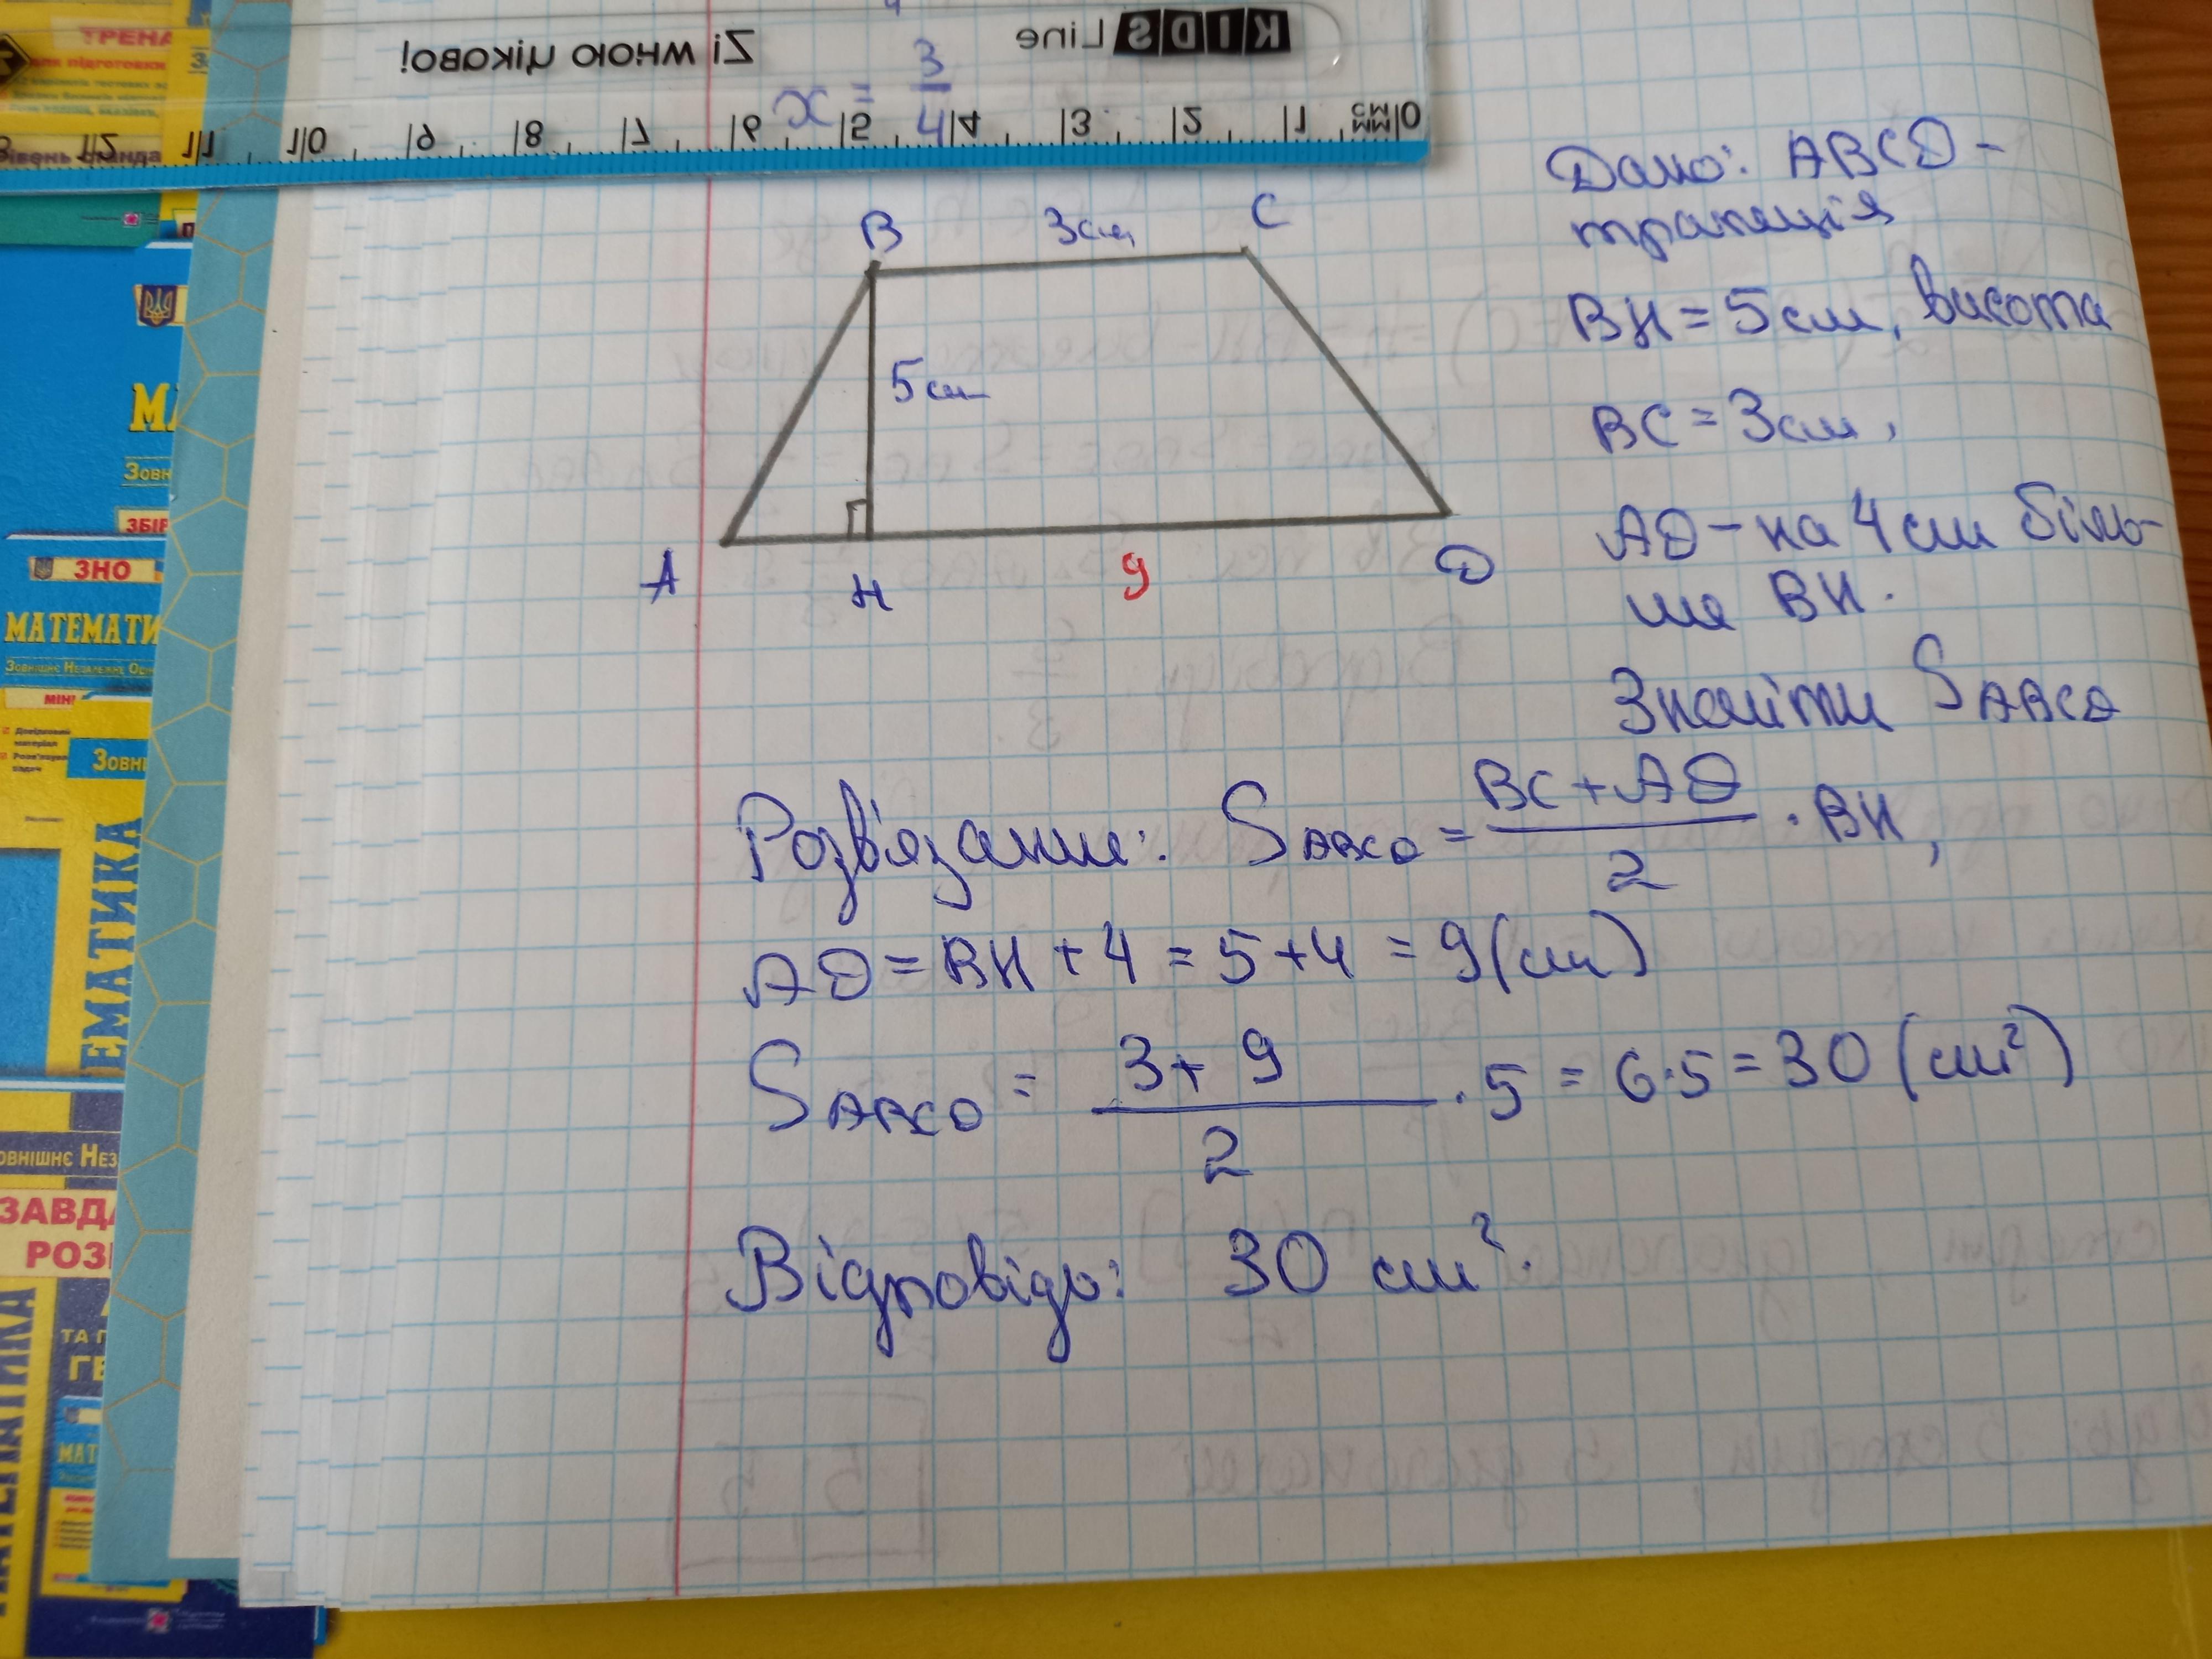 KIDS Line
Zi мною цікаво!
x = 3/4
см
мм 0 1 2 3 4 5 6 7 8 9 10 11 12
B 3см C
5см
A H 9 D
Дано: ABCD –
трапеція
BH = 5см, висота
BC = 3см,
AD – на 4 см біль-
ше BH.
Знайти S ABCD
Розв'язання: S ABCD = (BC + AD)/2 · BH,
AD = BH + 4 = 5 + 4 = 9 (см)
S ABCD = (3 + 9)/2 · 5 = 6·5 = 30 (см²)
Відповідь: 30 см².
ТРЕНА
для підготовки
ЗНО
МАТЕМАТИ
МІНІ
ЕМАТИКА
ЗАВДА
РОЗ
ТА Г
ГЕ
МАТ